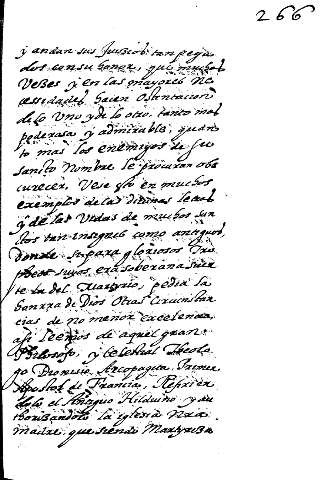 266
y andan sus Juicios tan pega
dos con su honor, que muchas
vezes y en las mayores ne
cessidades hacen ostentacion
de lo uno y de lo otro, tanto mas
poderosa y admirable, quan
to mas los enemigos de su
sancto Nombre le procuran obs
curecer, Vese esto en muchos
exemplos de las divinas letras
y de las Vidas de muchos san
tos tan insignes como antiguos,
donde para gloriosos
suyos, era soberana suer
te la del Martyrio, pedia la
honrra de Dios otras Circunstan
cias de no menor excelencia,
assi leemos de aquel gran
Philosofo, y celestial Theolo
go Dionisio Areopagita, Primer
Apostol de Francia, Refirien
dolo el Antiguo Hilduino y au
thorizandolo la iglesia Nra
madre, que siendo Martyriza